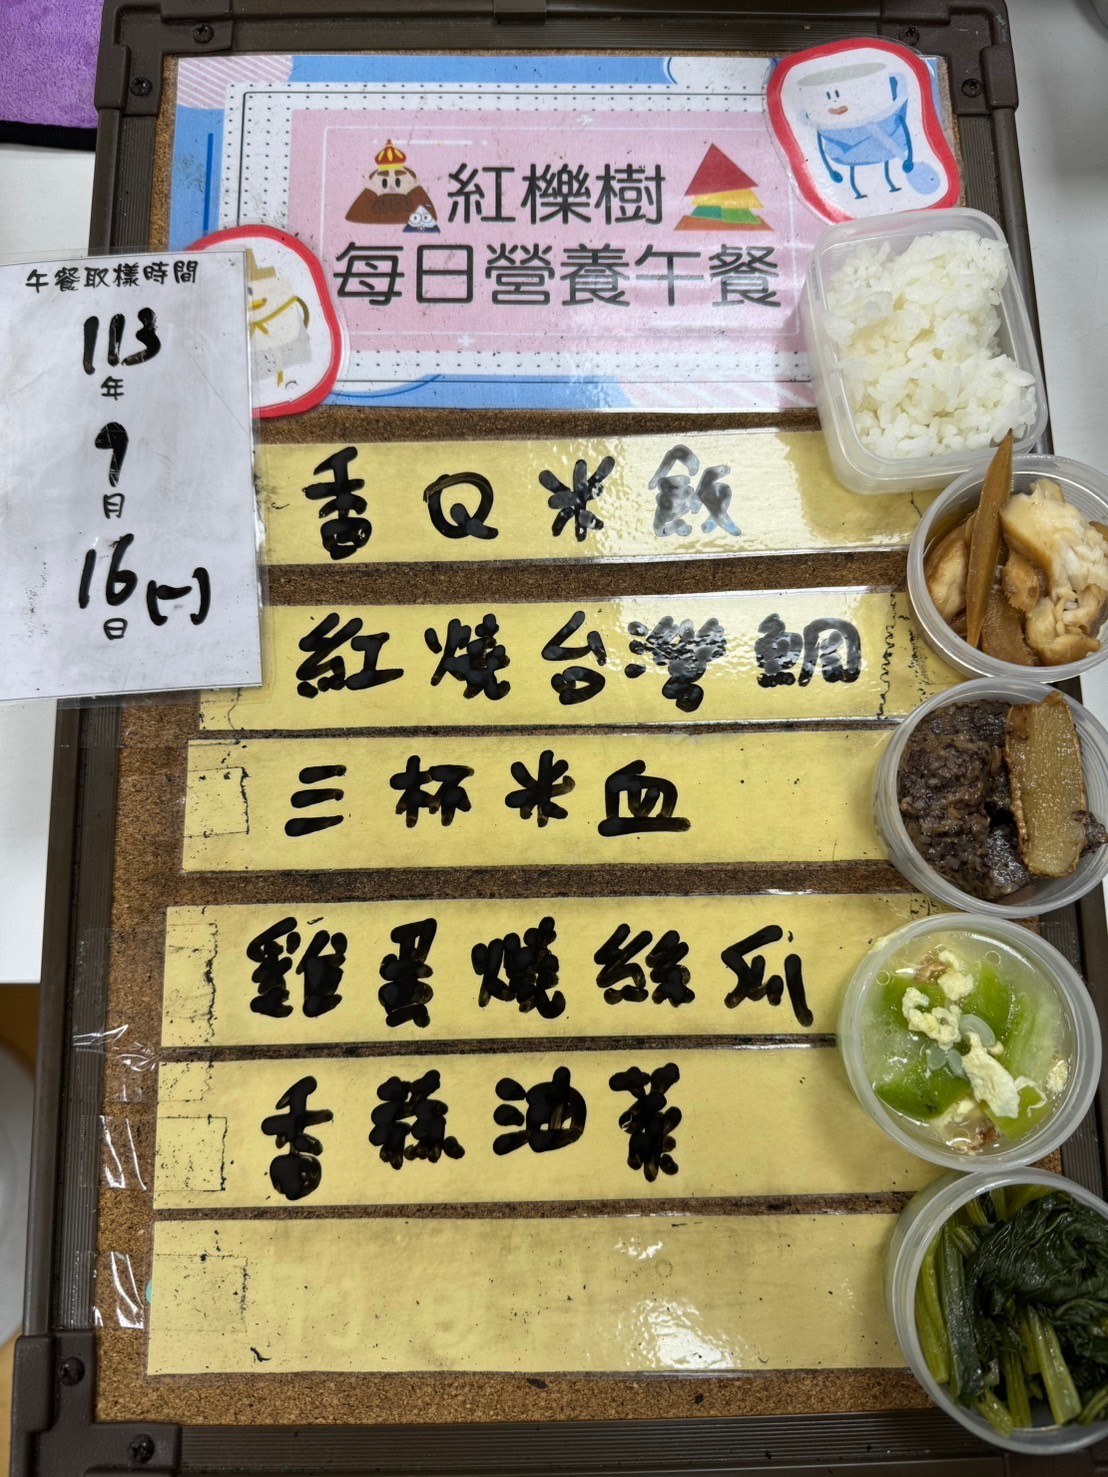 紅櫟樹
每日營養午餐
午餐取樣時間
113
年
9
月
16(一)
日
香Q米飯
紅燒台灣鯛
三杯米血
雞蛋燒絲瓜
香蒜油菜